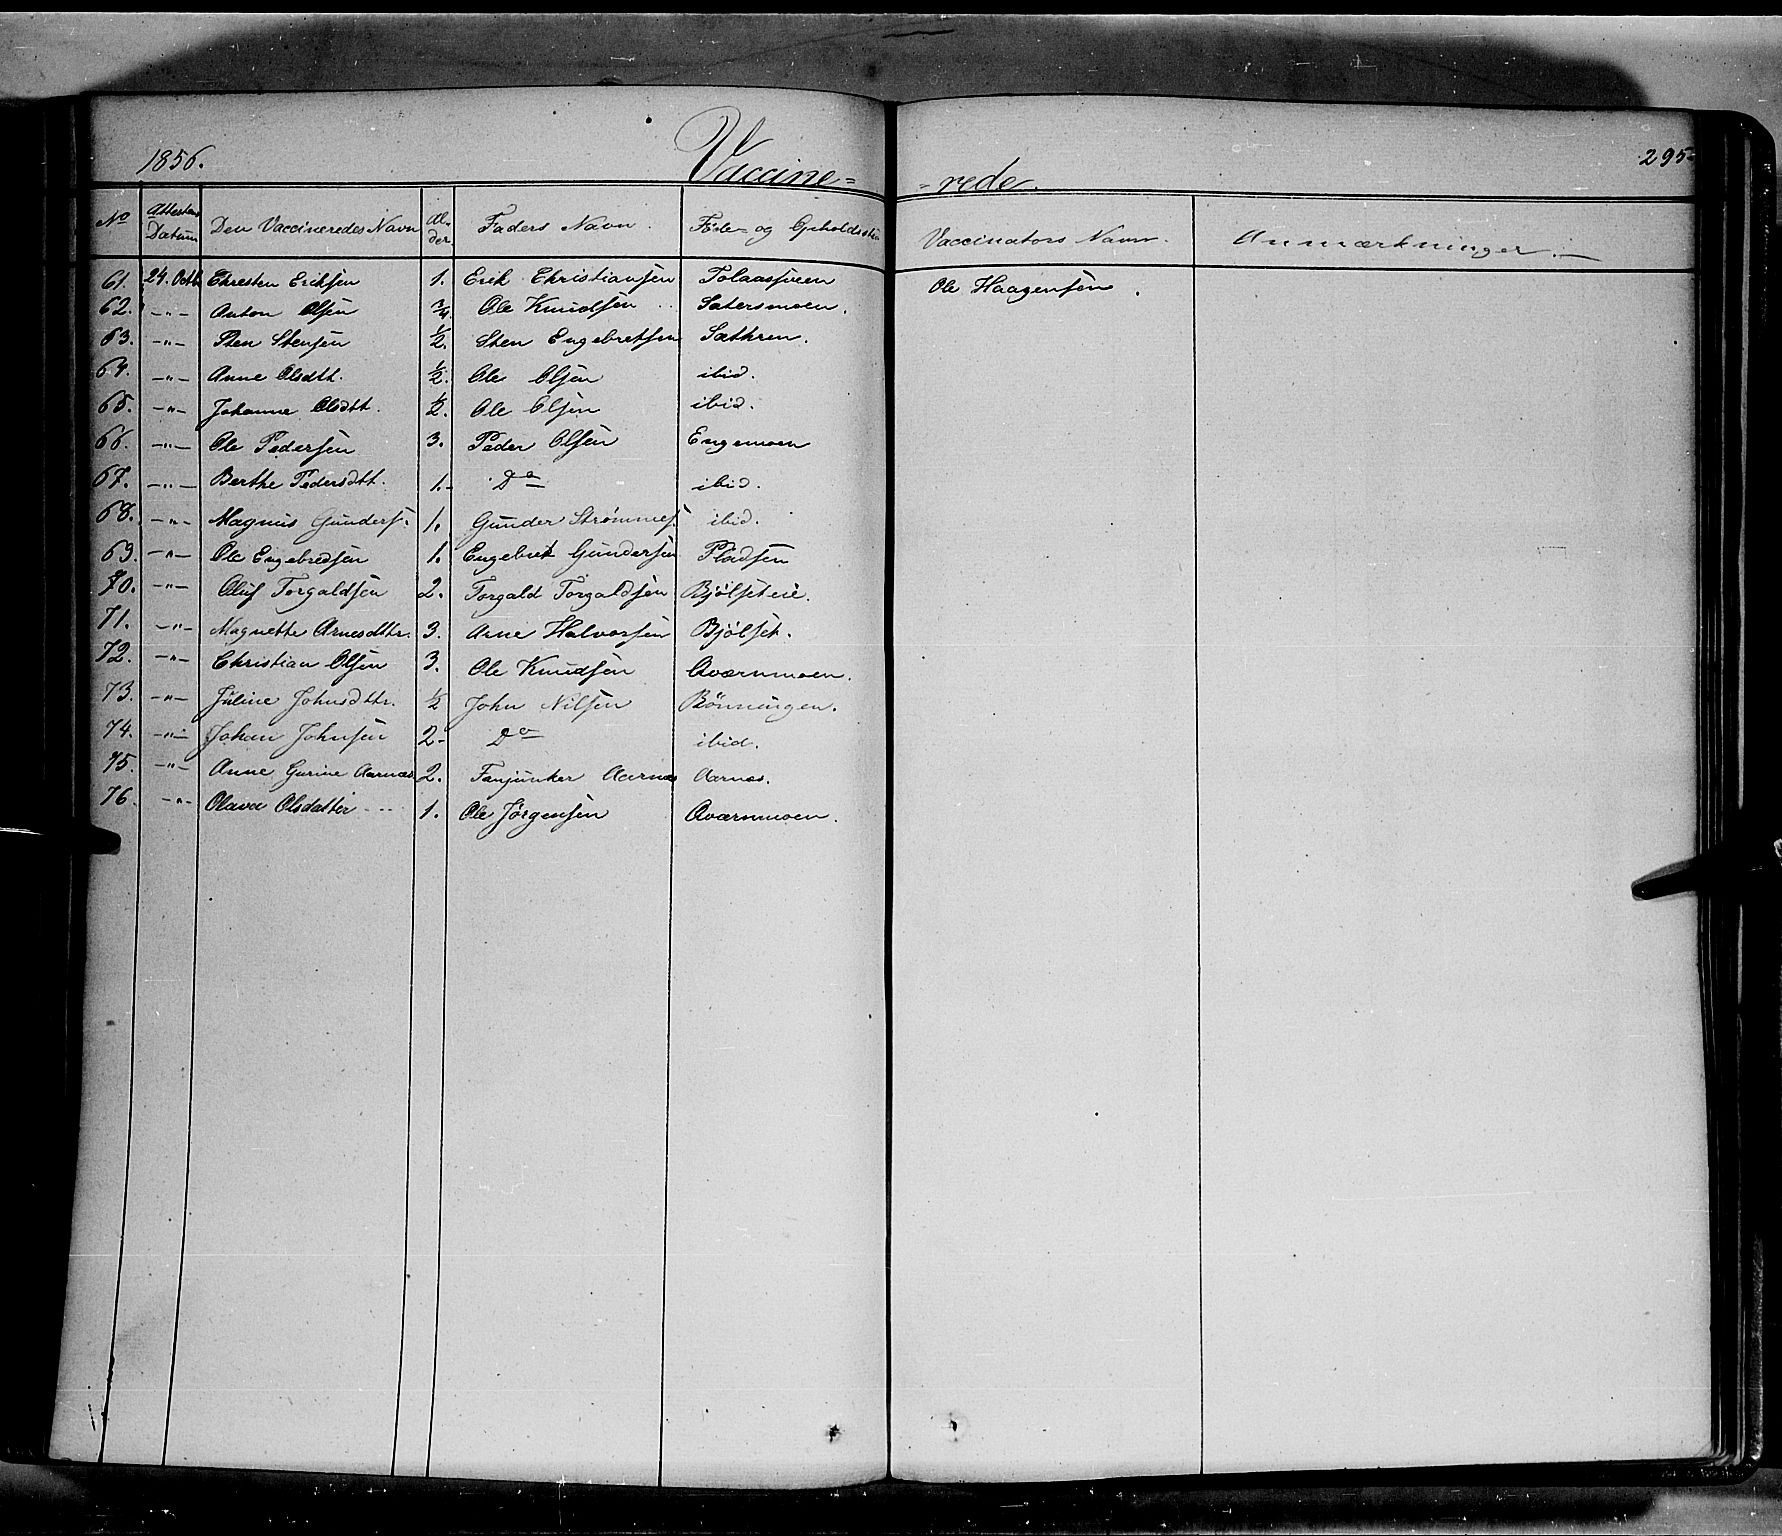 1856. Vaccine= =rede. 295
No Attestens Datum Den Vaccineredes Navn Al-der Faders Navn. Føde- og Opholdssted Vaccinators Navn. Anmærkninger.
61. 24. Octb Chresten Eriksen 1. Erik Christiansen Ole Haagensen.
62. -"- Anton Olsen 3/4 Ole Knudsen Sætersmoen.
63. -"- Sten Stensen 1/2. Sten Engebretsen Sæthren.
64. -"- Anne Olsdtt. 1/2. Ole Olsen ibid.
65. -"- Johanne Olsdtt. 1/2. Ole Olsen ibid.
66. -"- Ole Pedersen 3. Peder Olsen Engemoen
67. -"- Berthe Pedersdtt. 1.- Do ibid.
68. -"- Magnus Gunders. 1. Gunder Strømmes. ibid.
69. -"- Ole Engebredsen 1. Engebret Gundersen Pladsen
70. -"- Oluf Torgaldsen 2. Torgald Torgaldsen Bjølseteie.
71. -"- Magnette Arnesdttr. 3. Arne Halvorsen Bjølset.
72. -"- Christian Olsen 3. Ole Knudsen Qværnmoen.
73. -"- Juline Johnsdttr. 1/2 John Nilsen Rønningen.
74. -"- Johan Johnsen 2- Do ibid.
75. -"- Anne Gurine Aarnæs 2. Fanjunker Aarnæs Aarnæs.
76. -"- Olava Olsdatter 1. Ole Jørgensen Qværnmoen.